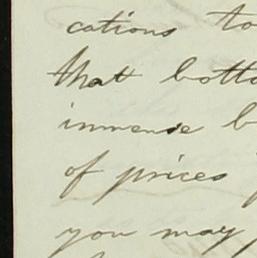 cations to
that botto
immense b
of prices
you may